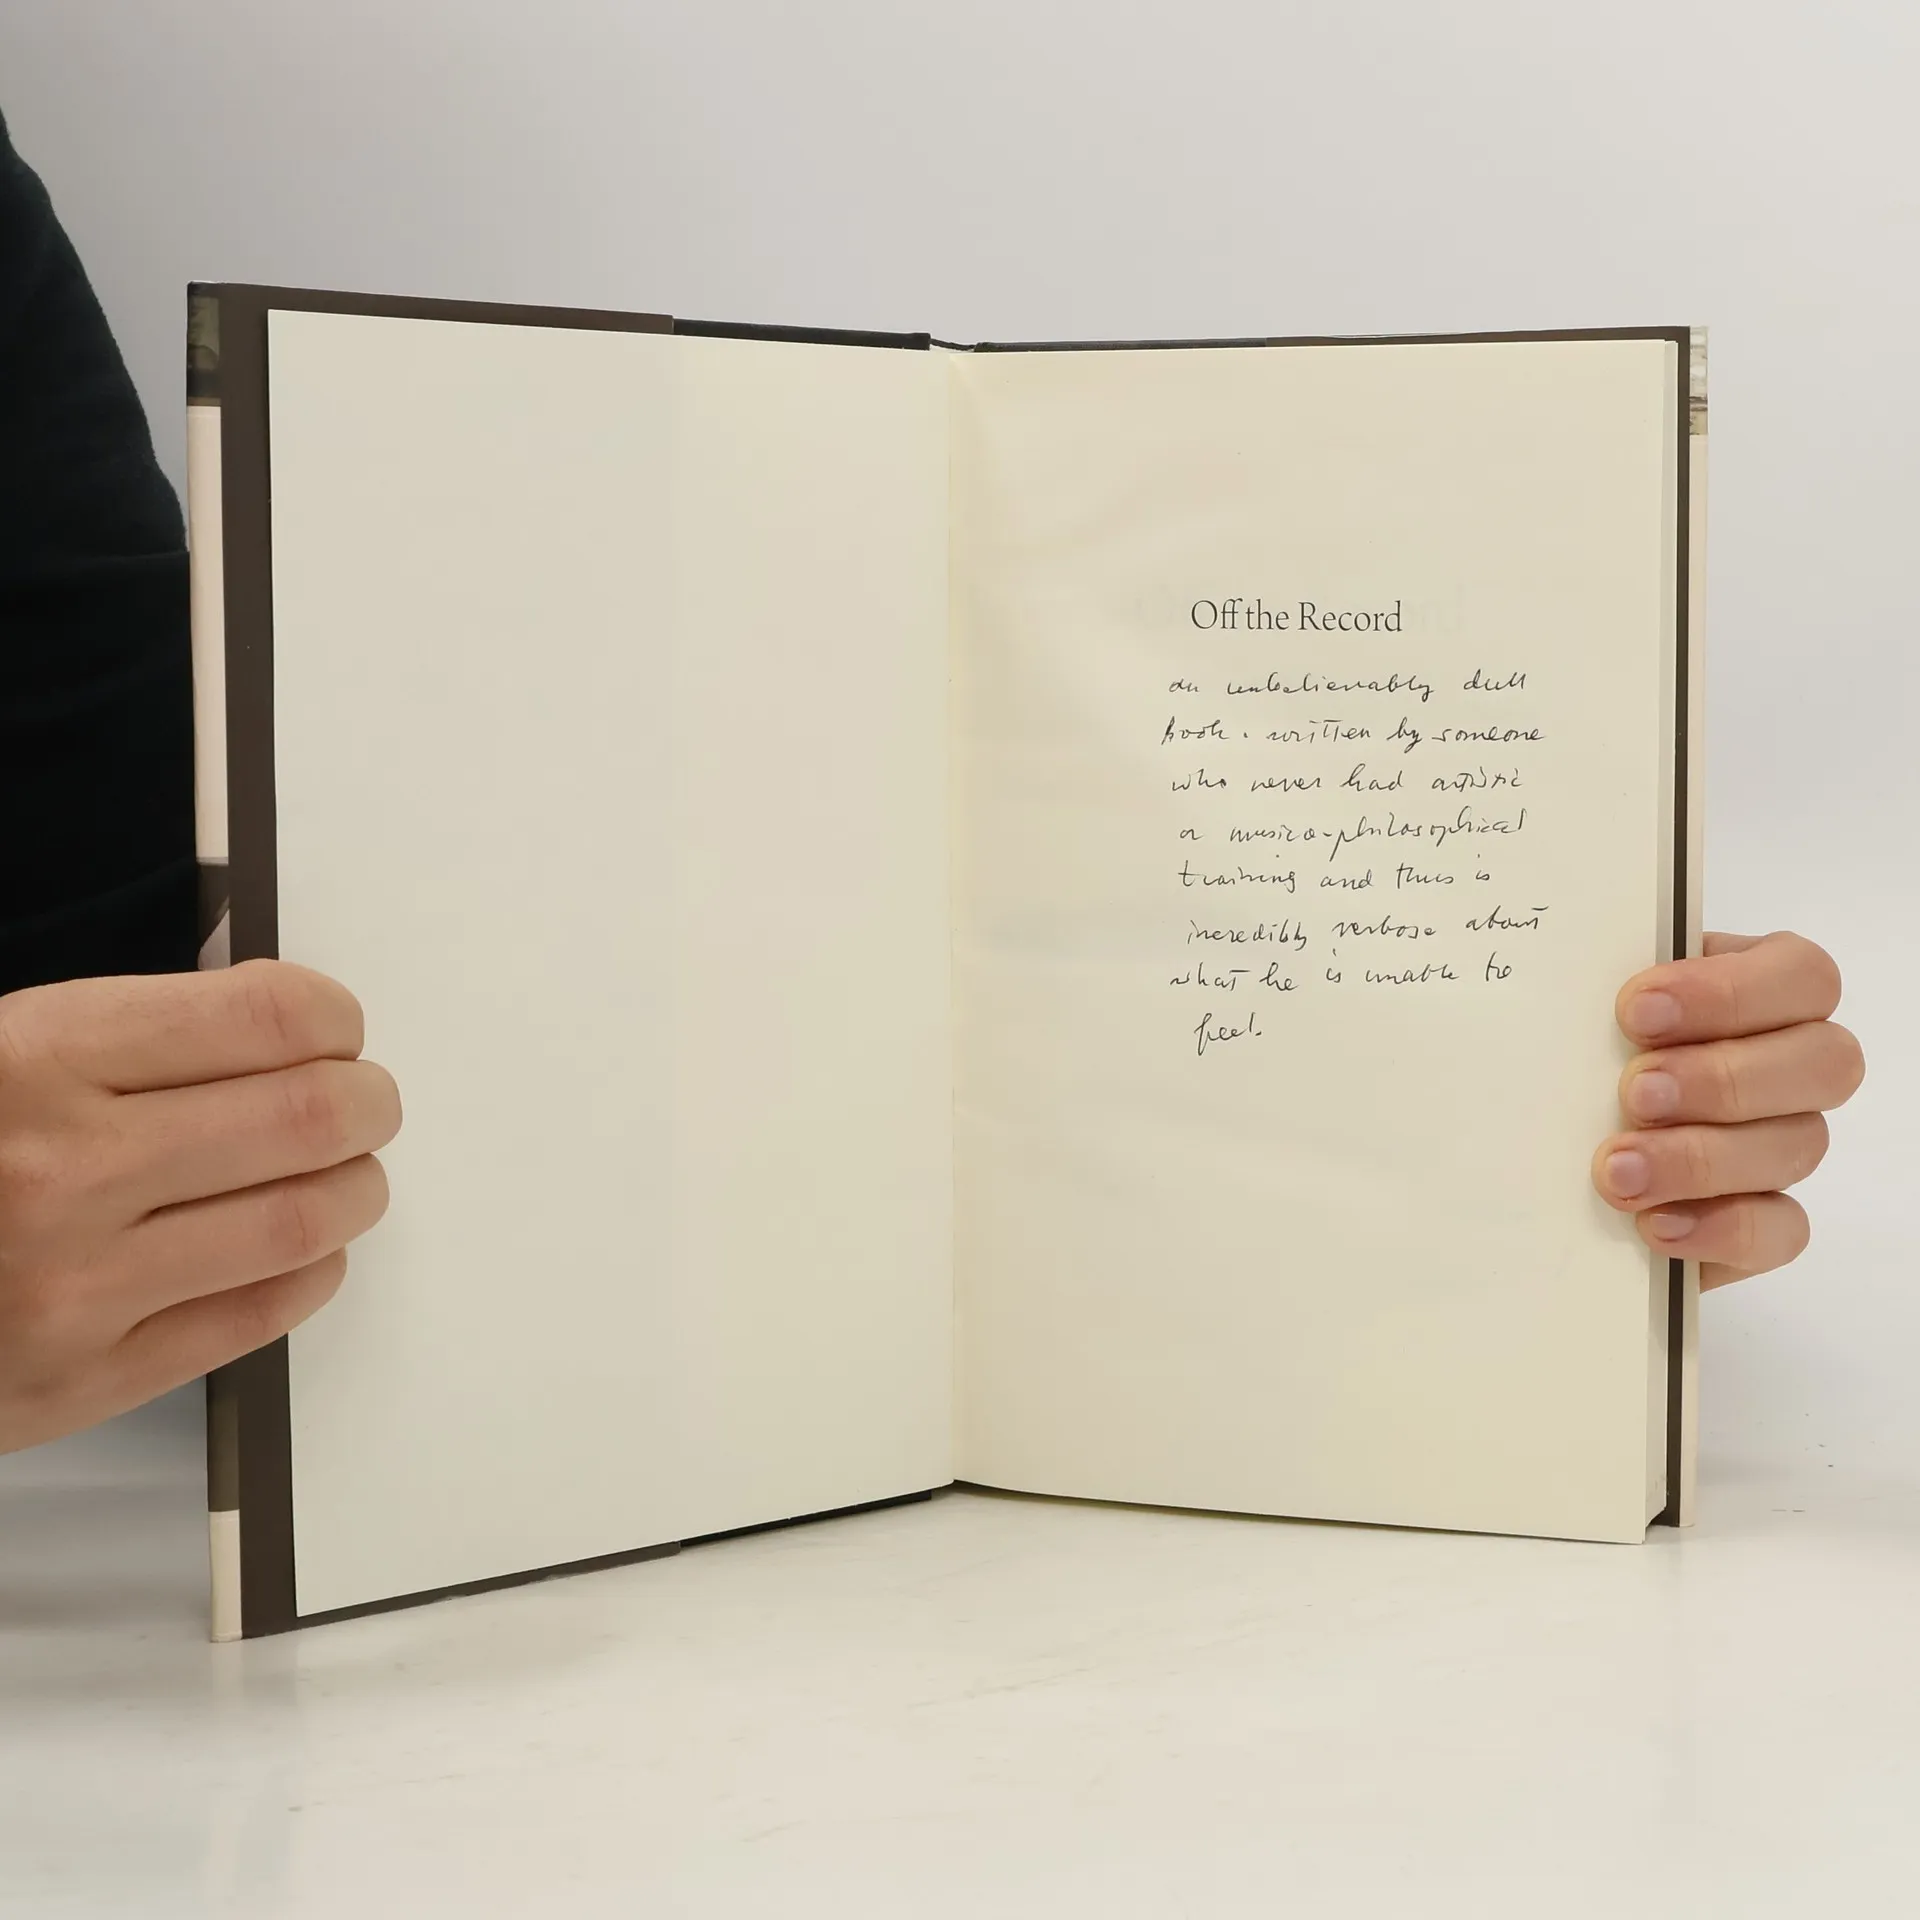 Off the Record
an unbelievably dull
book. written by someone
who never had artistic
or musico-philosophical
training and thus is
incredibly verbose about
what he is unable to
feel.